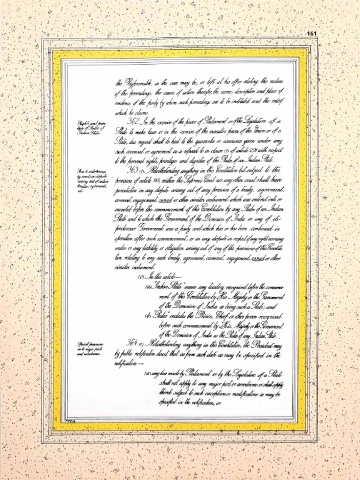 161
the Rajpramukh as the case may be, or left at his office stating the nature
of the proceedings, the cause of action therefor, the name, description and place of
residence of the party by whom such proceedings are to be instituted and the relief
which he claims.
Rights and privi-
leges of Rulers of
Indian States.
362. In the exercise of the power of Parliament or of the Legislature of a
State to make laws or in the exercise of the executive power of the Union or of a
State, due regard shall be had to the guarantee or assurance given under any
such covenant or agreement as is referred to in clause (1) of article 291 with respect
to the personal rights, privileges and dignities of the Ruler of an Indian State.
Bar to interference
by courts in disputes
arising out of certain
treaties, agreements,
etc.
363. (1) Notwithstanding anything in this Constitution but subject to the
provisions of article 143, neither the Supreme Court nor any other court shall have
jurisdiction in any dispute arising out of any provision of a treaty, agreement,
covenant, engagement, sanad or other similar instrument which was entered into or
executed before the commencement of this Constitution by any Ruler of an Indian
State and to which the Government of the Dominion of India or any of its
predecessor Governments was a party and which has or has been continued in
operation after such commencement, or in any dispute in respect of any right accruing
under or any liability or obligation arising out of any of the provisions of this Constitu-
tion relating to any such treaty, agreement, covenant, engagement, sanad or other
similar instrument.
(2) In this article—
(a) "Indian State" means any territory recognised before the commence-
ment of this Constitution by His Majesty or the Government
of the Dominion of India as being such a State; and
(b) "Ruler" includes the Prince, Chief or other person recognised
before such commencement by His Majesty or the Government
of the Dominion of India as the Ruler of any Indian State.
Special provisions
as to major ports
and aerodromes.
364. (1) Notwithstanding anything in this Constitution, the President may
by public notification direct that as from such date as may be specified in the
notification—
(a) any law made by Parliament or by the Legislature of a State
shall not apply to any major port or aerodrome or shall apply
thereto subject to such exceptions or modifications as may be
specified in the notification, or